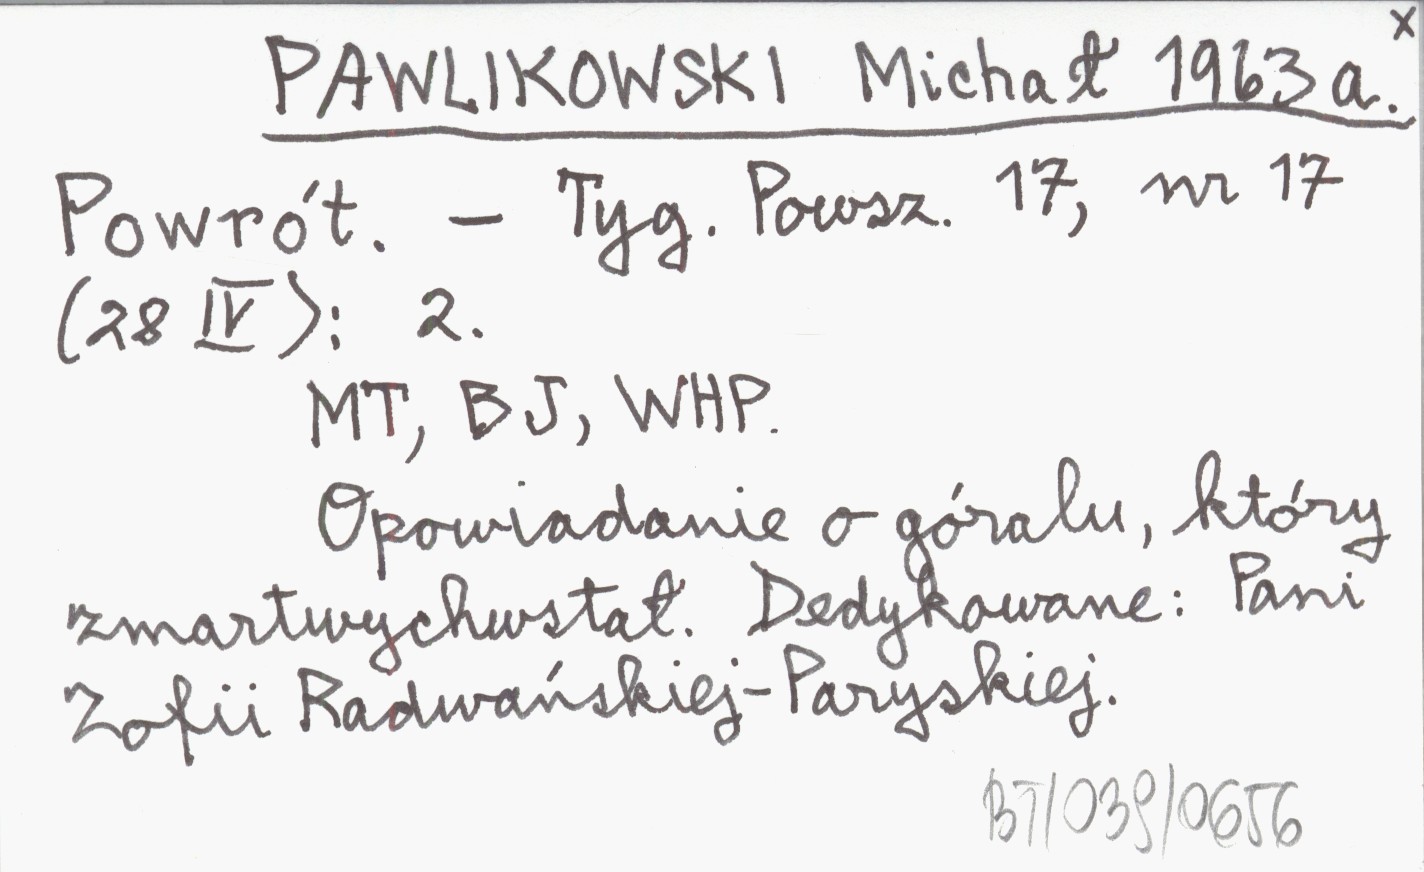 x
PAWLIKOWSKI Michał 1963 a.
Powrót. – Tyg. Powsz. 17, nr 17
(28 IV): 2.
MT, BJ, WHP.
Opowiadanie o góralu, który
zmartwychwstał. Dedykowane: Pani
Zofii Radwańskiej-Paryskiej.
BT/039/0656